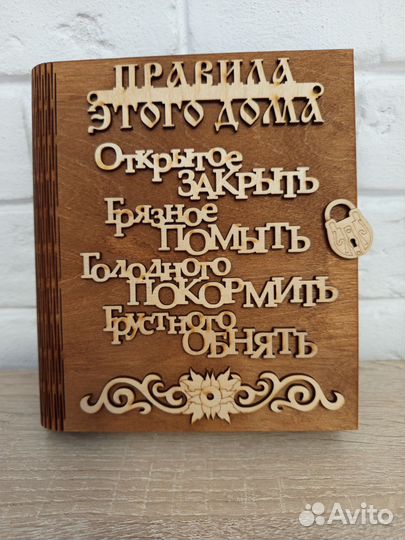 ПРАВИЛА
ЭТОГО ДОМА
Открытое
ЗАКРЫТЬ
Грязное
ПОМЫТЬ
Голодного
ПОКОРМИТЬ
Грустного
ОБНЯТЬ
Avito